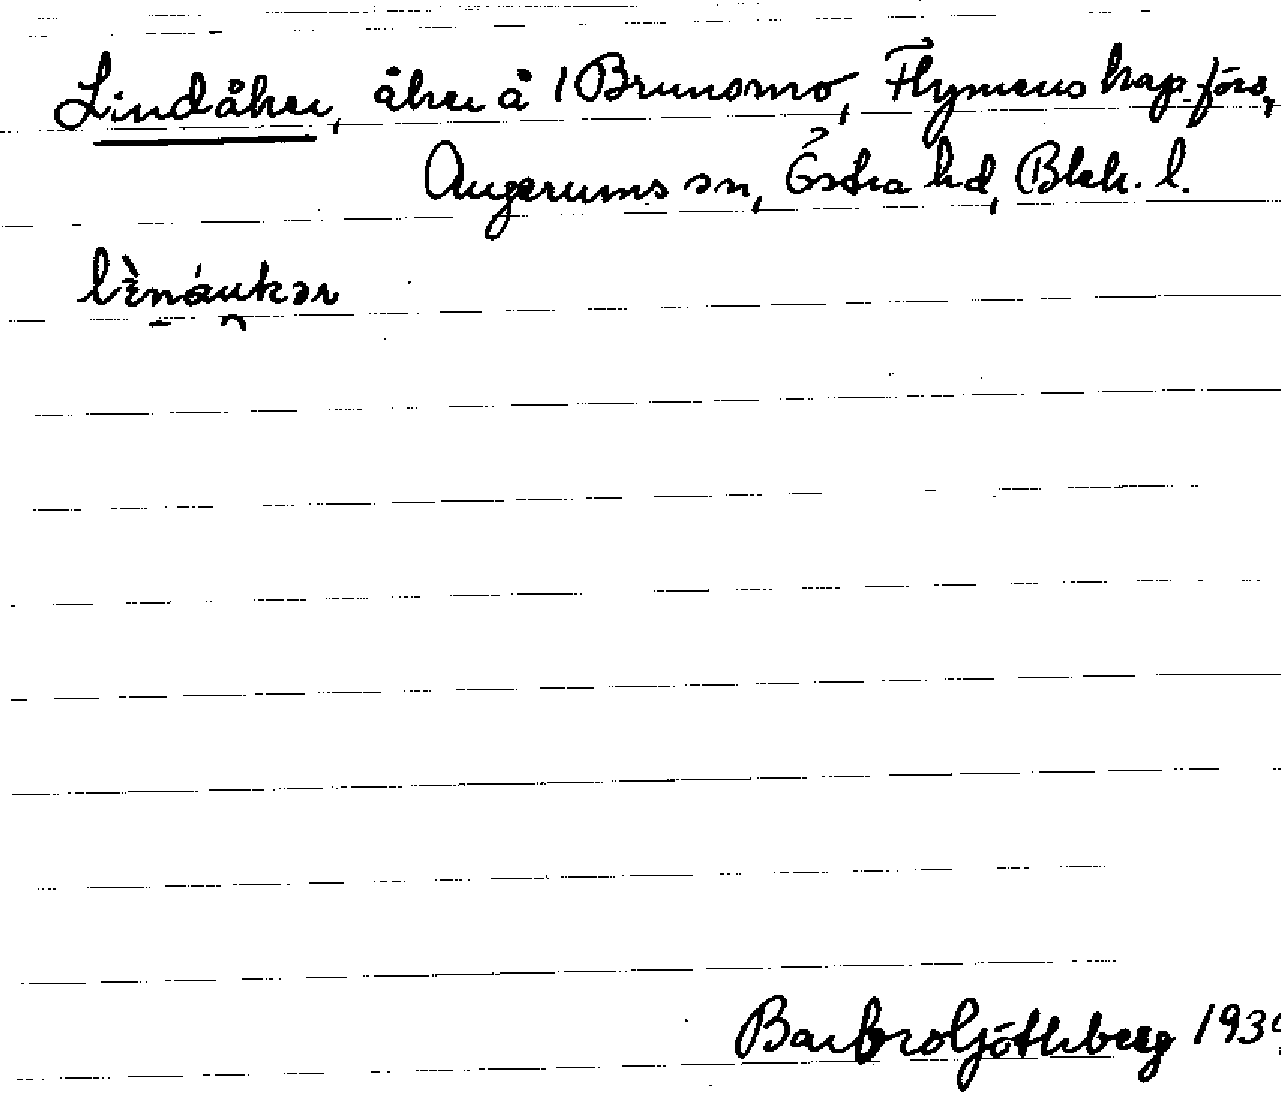 Lindåker, åker å 1 Brunsmo, Flymens kap.förs,
Augerums sn, Östra hd, Blek. l.
Barbro Göthberg